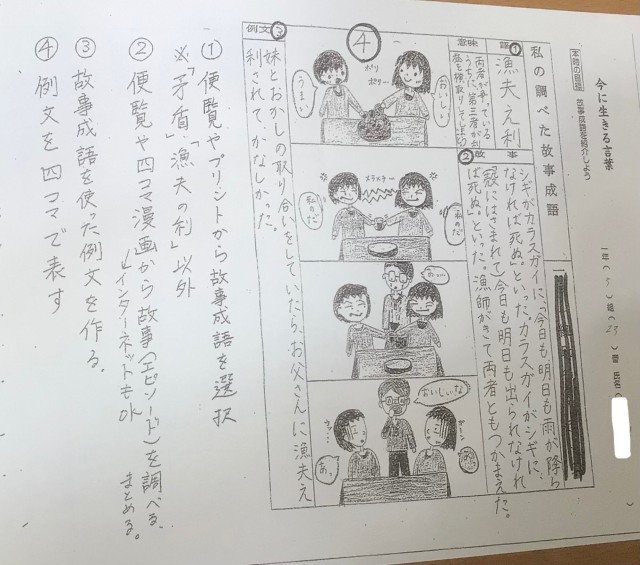 今に生きる言葉
本時の目標 故事成語を紹介しよう
一年(5)組(23)番 氏名(
私の調べた故事成語
語①
漁夫之利
意味
両者が争っている
うちに、第三者が利
益を横取りしてしまう
②故事
シギがカラスガイに、「今日も明日も雨が降ら
なければ死ぬ」といった。カラスガイがシギに、
「殻にはさまれて今日も明日も出られなけれ
ば死ぬ。」といった。漁師がきて両者ともつかまえた。
④
おいしい
ポリ
ポリー
うまっ
私のだ
メラメラ
私のだ
おいしいな
ガーン
あ、
例文③
妹とおかしの取り合いをしていたら、お父さんに漁夫之
利されて、かなしかった。
①便覧やプリントから故事成語を選択
※「矛盾」「漁夫の利」以外
②便覧や四コマ漫画から故事(エピソード)を調べる、
まとめる。
↓インターネットもOK
③故事成語を使った例文を作る.
④例文を四コマで表す